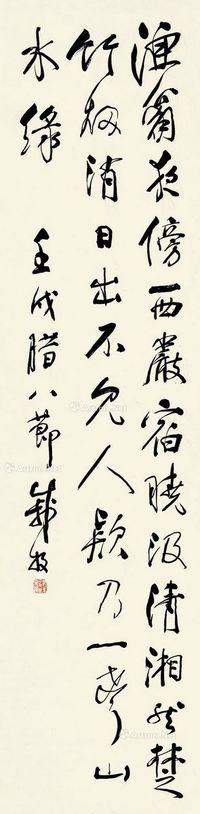 漁翁夜傍西巖宿曉汲清湘然楚
竹烟消日出不見人欸乃一聲山
水綠 壬戌臘八節